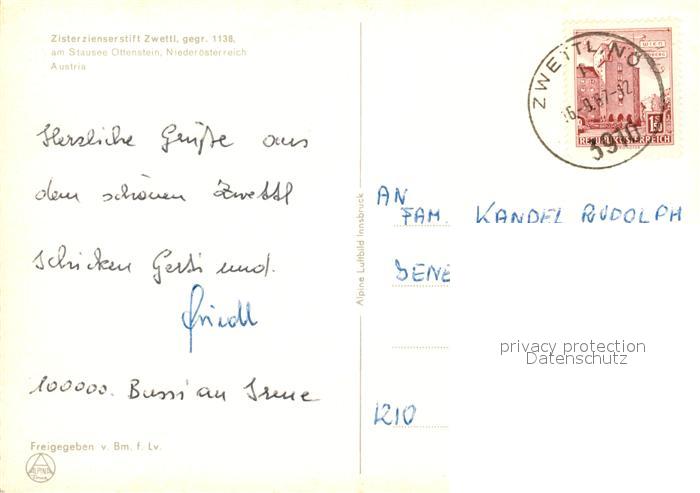 Zisterzienserstift Zwettl, gegr. 1138,
am Stausee Ottenstein, Niederösterreich
Austria
Herzliche Grüße aus
dem schönen Zwettl
schicken Gerti und
Friedl
100000. Bussi an Irene
Freigegeben v. Bm. f. Lv.
ALPINE
Alpine Luftbild Innsbruck
ZWETTL, NÖ
3910
REPUBLIK ÖSTERREICH
WIEN
AN
FAM. KANDEL RUDOLPH
JENE
1210
privacy protection
Datenschutz